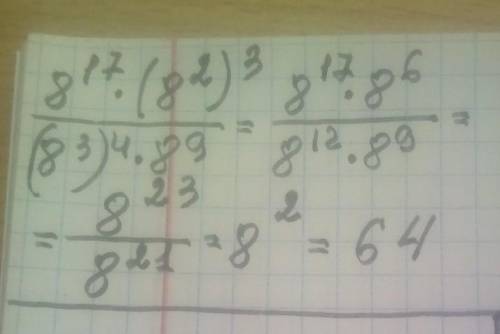 8¹⁷·(8²)³ / (8³)⁴·8⁹ = 8¹⁷·8⁶ / 8¹²·8⁹ =
= 8²³ / 8²¹ = 8² = 64